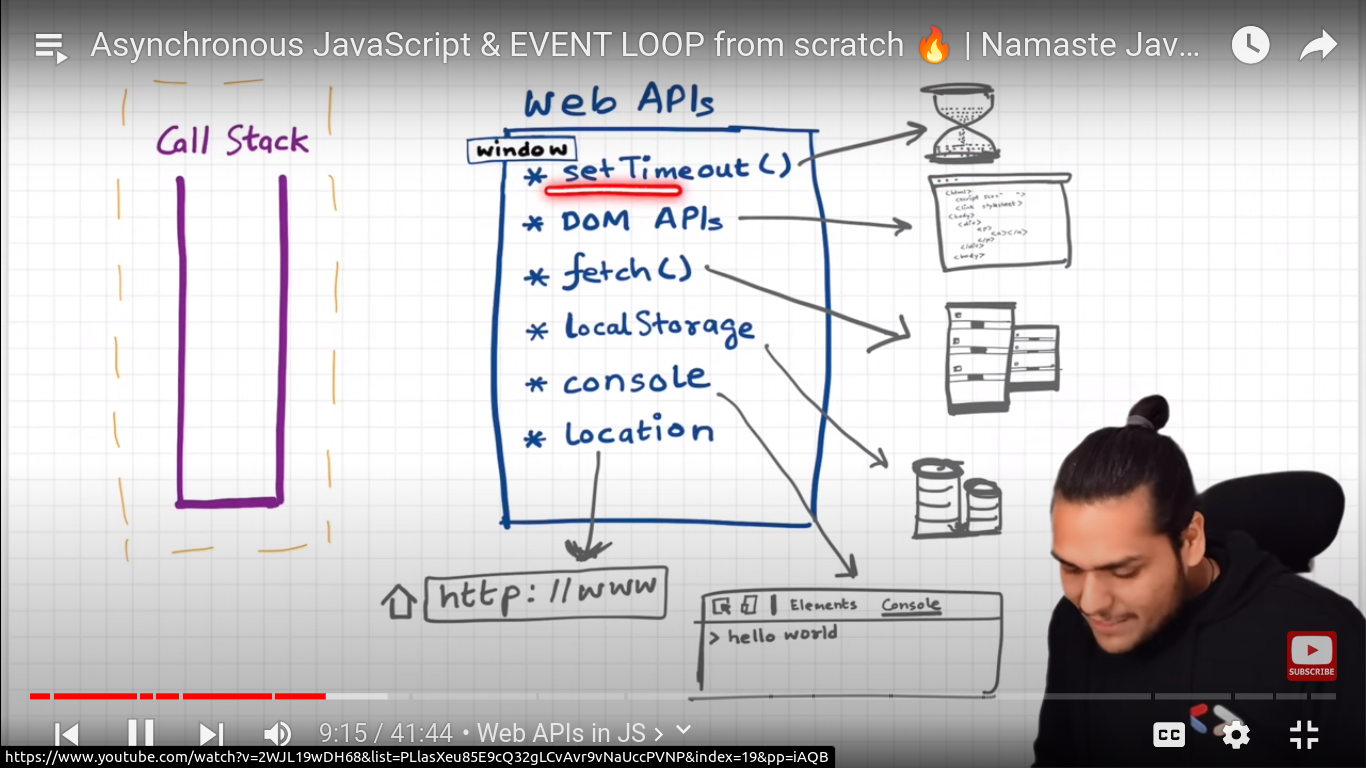 Asynchronous JavaScript & EVENT LOOP from scratch 🔥 | Namaste Jav...
Web APIs
Call Stack
window
* setTimeout()
* DOM APIs
* fetch()
* localStorage
* console
* location
<html>
<link stylesheet>
<body>
<div>
<p>
</p>
</div>
<body>
http://www
Elements Console
> hello world
SUBSCRIBE
9:15 / 41:44 • Web APIs in JS >
CC
https://www.youtube.com/watch?v=2WJL19wDH68&list=PLlasXeu85E9cQ32gLCvAvr9vNaUccPVNP&index=19&pp=iAQB